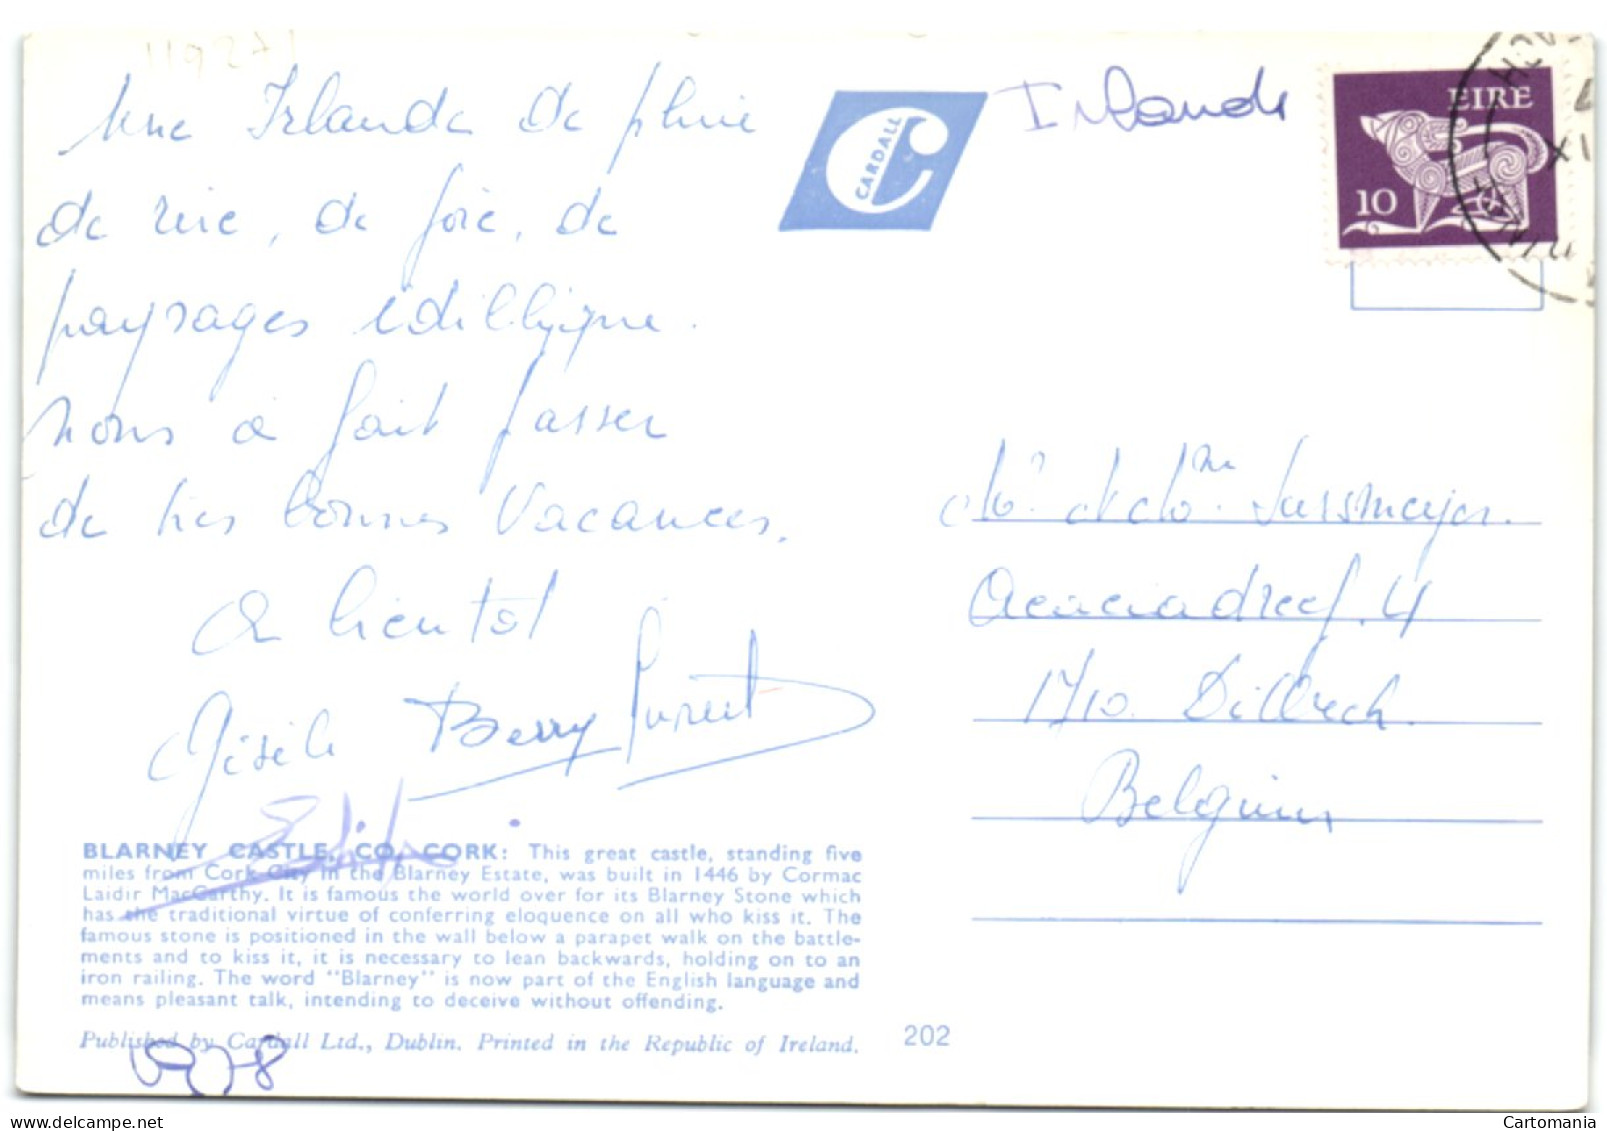 Une Irlande de pluie
de rire, de joie, de
paysages idilliyique.
nous à fait passer
de très bonnes vacances.
A bientôt
Gisèle Berry
Edith
BLARNEY CASTLE, CO, CORK: This great castle, standing five
miles from Cork City in the Blarney Estate, was built in 1446 by Cormac
Laidir MacCarthy. It is famous the world over for its Blarney Stone which
has the traditional virtue of conferring eloquence on all who kiss it. The
famous stone is positioned in the wall below a parapet walk on the battle-
ments and to kiss it, it is necessary to lean backwards, holding on to an
iron railing. The word "Blarney" is now part of the English language and
means pleasant talk, intending to deceive without offending.
Published by Cardall Ltd., Dublin. Printed in the Republic of Ireland.
202
CARDALL
Irlande
EIRE
10
Mr et Mme Sussmeyer.
Acaciadreef. 4
1710. Dilbeek.
Belgium
Cartomania